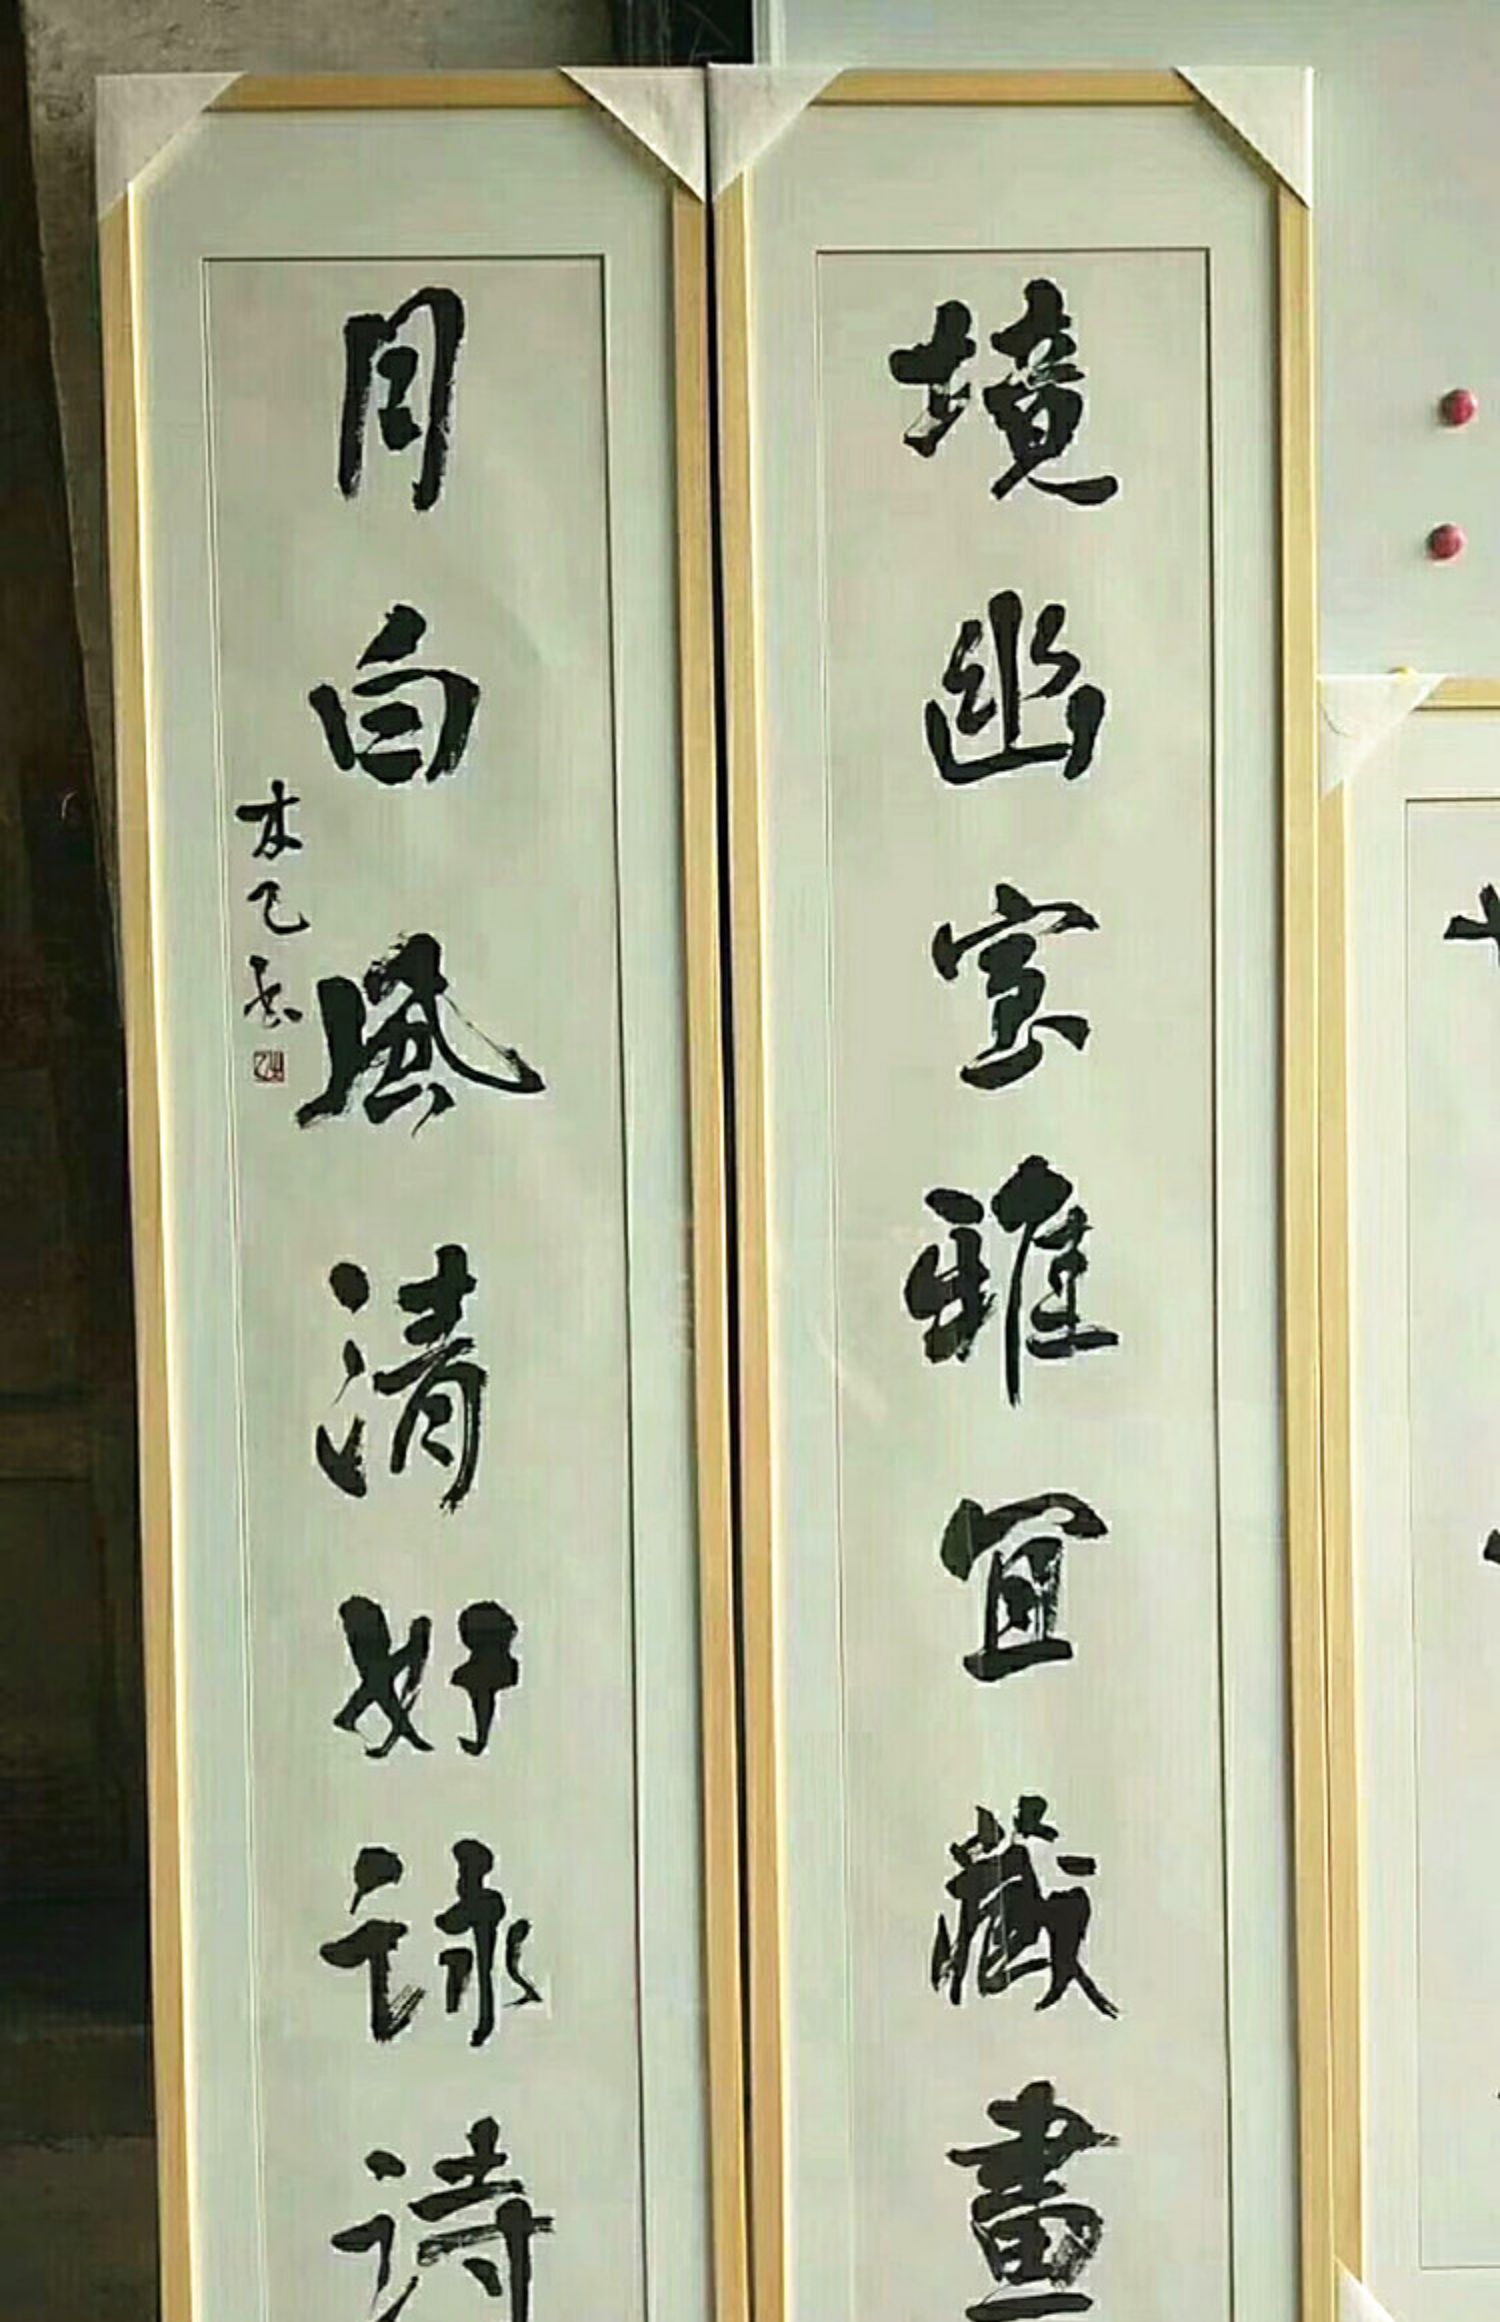 境幽室雅宜藏畫
月白風清好詠詩